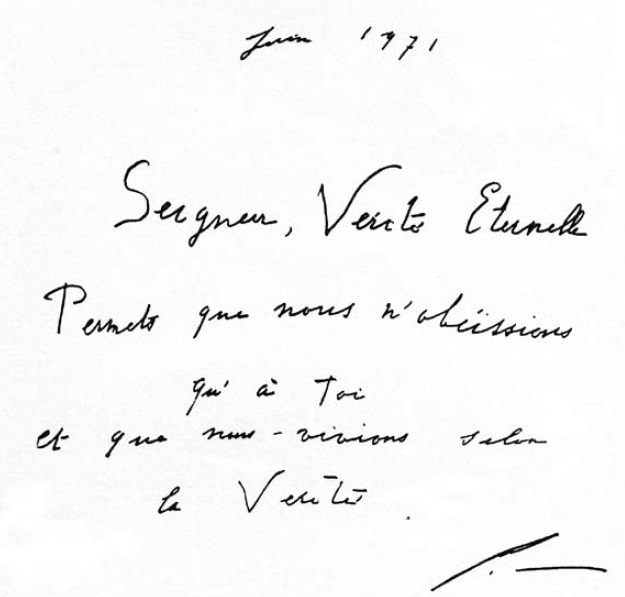 Juin 1971
Seigneur, Verité Eternelle
Permets que nous n'obéissions
qu'à Toi
et que nous vivions selon
la Verité.